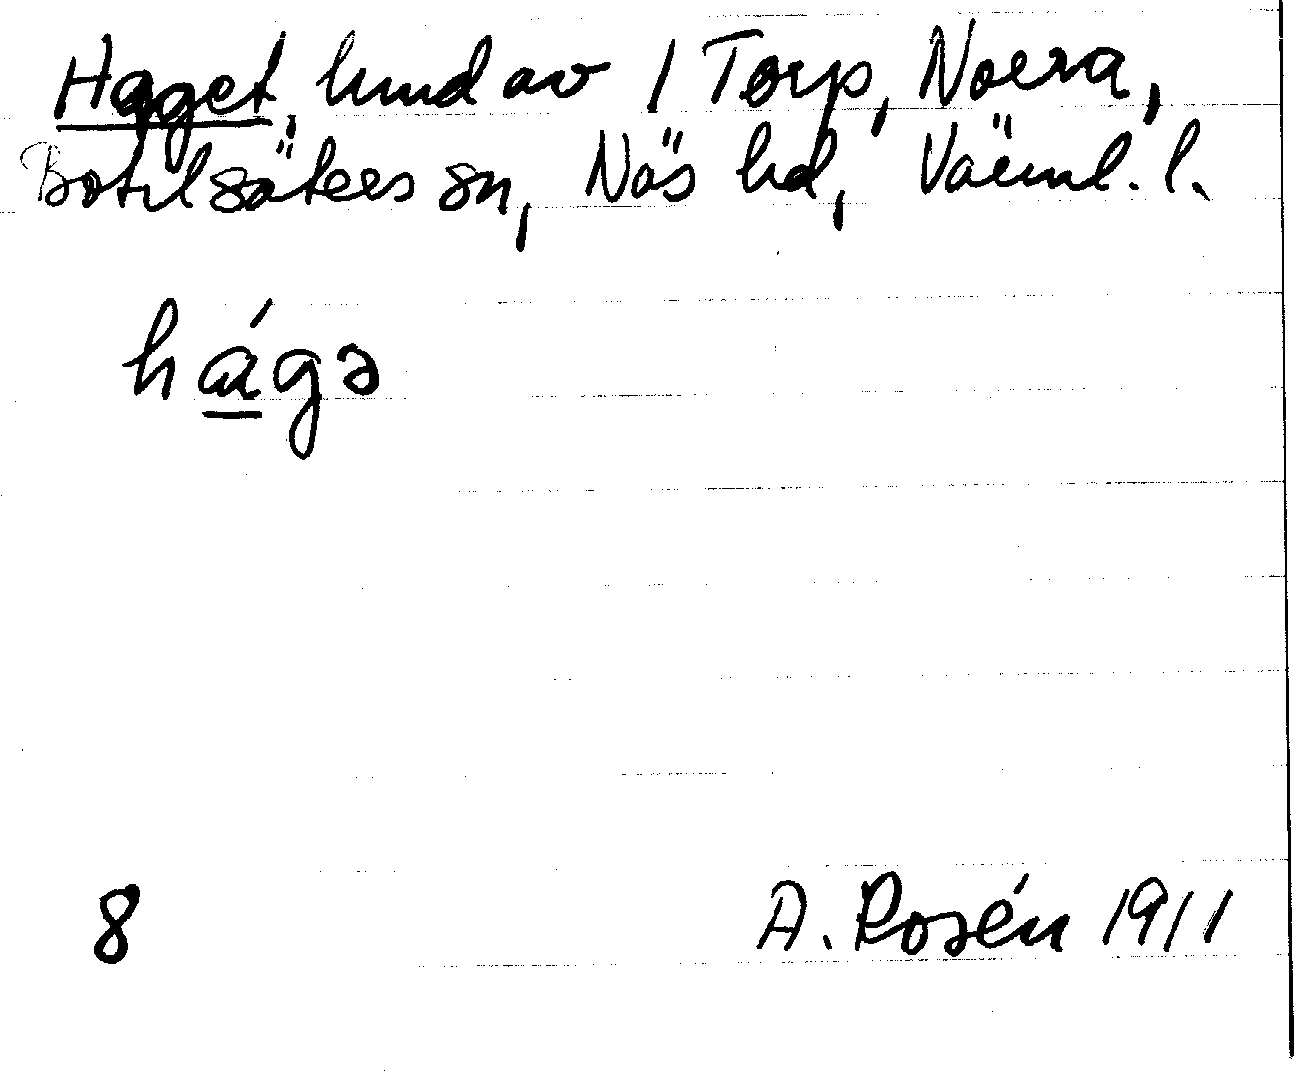 Haget, lund av 1 Torp, Norra,
Botilsäters sn, Näs hd, Värml. l.
hágə
8
A. Rosén 1911